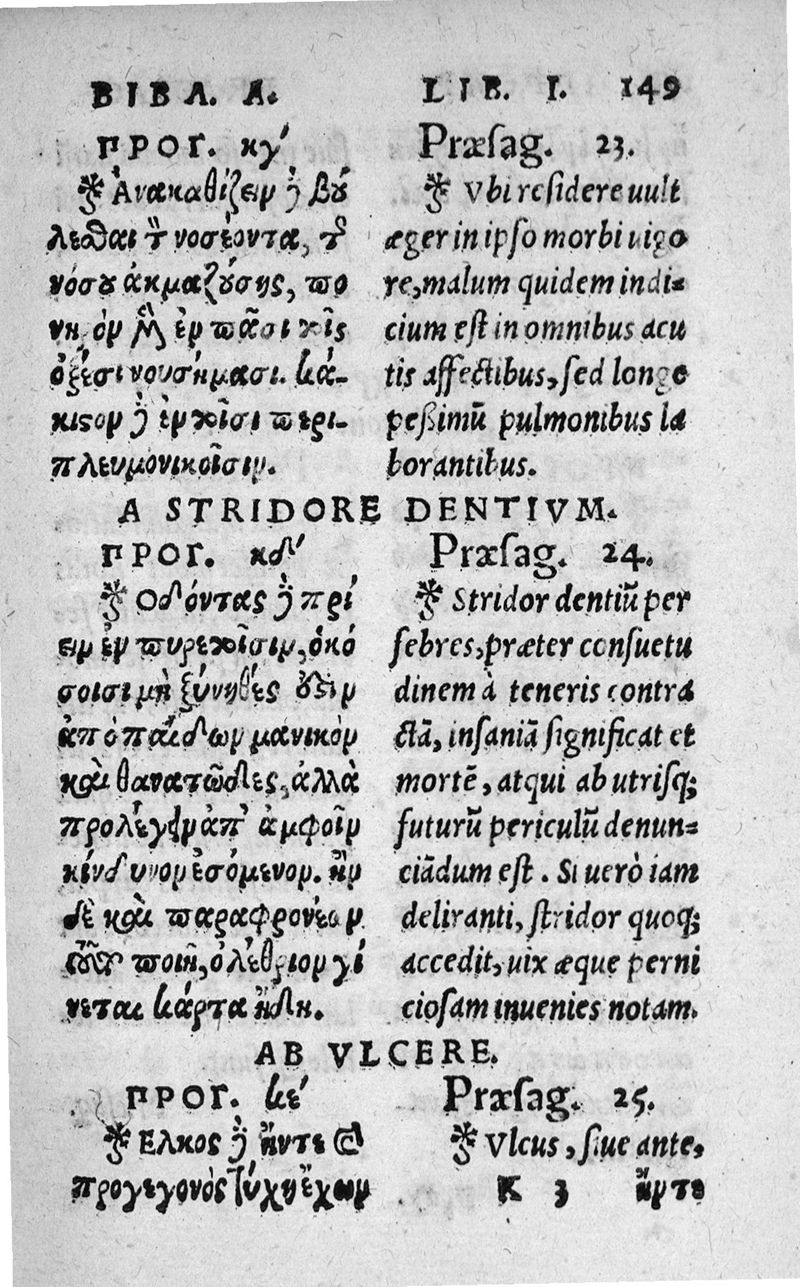 ΒΙΒΛ. Α.
ΠΡΟΓ. κγʹ
Ἀνακαθίζειν δὲ βού
λεσθαι τὸν νοσέοντα, τῆς
νόσου ἀκμαζούσης, πο
νηρὸν μὲν ἐν πᾶσι τοῖς
ὀξέσι νουσήμασι. κά-
κιστον δὲ ἐν τοῖσι περι-
πλευμονικοῖσιν.
LIB. I. 149
Præsag. 23.
Vbi residere uult
æger in ipso morbi uigo
re, malum quidem indi=
cium est in omnibus acu
tis affectibus, sed longe
peßimū pulmonibus la
borantibus.
A STRIDORE DENTIVM.
ΠΡΟΓ. κδʹ
Ὀδόντας δὲ πρί
ειν ἐν πυρετοῖσιν, ὁκό
σοισι μὴ ξύνηθές ἐστιν
ἀπὸ παίδων μανικὸν
καὶ θανατῶδες, ἀλλὰ
προλέγειν ἀπ' ἀμφοῖν
κίνδυνον ἐσόμενον. ἢν
δὲ καὶ παραφρονέων
τοῦτο ποιῇ, ὀλέθριον γί
νεται κάρτα ἤδη.
Præsag. 24.
Stridor dentiū per
febres, præter consuetu
dinem à teneris contra
ctā, insaniā significat et
mortē, atqui ab utrisq;
futurū periculū denun=
ciādum est. Si uerò iam
deliranti, stridor quoq;
accedit, uix æque perni
ciosam inuenies notam.
AB VLCERE.
ΠΡΟΓ. κεʹ
Ἕλκος δὲ ἤντε καὶ
προγεγονὸς τύχῃ ἔχων
Præsag. 25.
Vlcus, siue ante,
K 3 ἤντε